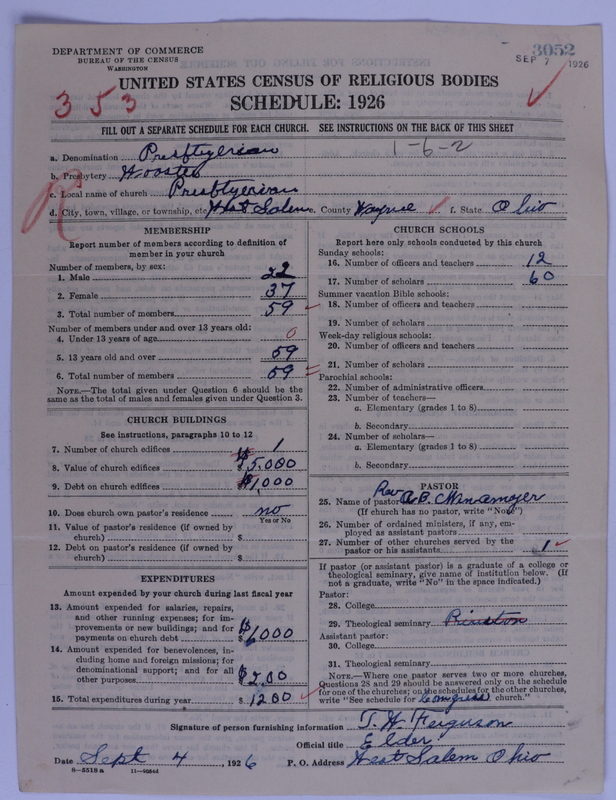 DEPARTMENT OF COMMERCE
BUREAU OF THE CENSUS
WASHINGTON
3052
SEP 7 1926
UNITED STATES CENSUS OF RELIGIOUS BODIES
353
SCHEDULE: 1926
FILL OUT A SEPARATE SCHEDULE FOR EACH CHURCH. SEE INSTRUCTIONS ON THE BACK OF THIS SHEET
1-6-2
a. Denomination Presbtyerian
b. Presbytery Wooster
c. Local name of church Presbtyerian
d. City, town, village, or township, etc West Salem e. County Wayne f. State Ohio
R
MEMBERSHIP
Report number of members according to definition of
member in your church
Number of members, by sex:
1. Male 22
2. Female 37
3. Total number of members 59
Number of members under and over 13 years old:
4. Under 13 years of age 0
5. 13 years old and over 59
6. Total number of members 59
NOTE.—The total given under Question 6 should be the
same as the total of males and females given under Question 3.
CHURCH BUILDINGS
See instructions, paragraphs 10 to 12
7. Number of church edifices 1
8. Value of church edifices $5,000
9. Debt on church edifices $1,000
10. Does church own pastor's residence no
Yes or No
11. Value of pastor's residence (if owned by
church) $
12. Debt on pastor's residence (if owned by
church) $
EXPENDITURES
Amount expended by your church during last fiscal year
13. Amount expended for salaries, repairs,
and other running expenses; for im-
provements or new buildings; and for
payments on church debt $1,000
14. Amount expended for benevolences, in-
cluding home and foreign missions; for
denominational support; and for all
other purposes $200
15. Total expenditures during year $1200
CHURCH SCHOOLS
Report here only schools conducted by this church
Sunday schools:
16. Number of officers and teachers 12
17. Number of scholars 60
Summer vacation Bible schools:
18. Number of officers and teachers
19. Number of scholars
Week-day religious schools:
20. Number of officers and teachers
21. Number of scholars
Parochial schools:
22. Number of administrative officers
23. Number of teachers—
a. Elementary (grades 1 to 8)
b. Secondary
24. Number of scholars—
a. Elementary (grades 1 to 8)
b. Secondary
PASTOR
25. Name of pastor Rev A.B.C.
(If church has no pastor, write "None")
26. Number of ordained ministers, if any, em-
ployed as assistant pastors
27. Number of other churches served by the
pastor or his assistants 1
If pastor (or assistant pastor) is a graduate of a college or
theological seminary, give name of institution below. (If
not a graduate, write "No" in the space indicated.)
Pastor:
28. College
29. Theological seminary Prinston
Assistant pastor:
30. College
31. Theological seminary
NOTE.—Where one pastor serves two or more churches,
Questions 28 and 29 should be answered only on the schedule
for one of the churches; on the schedules for the other churches,
write "See schedule for Congress church."
Signature of person furnishing information T. W. Ferguson
Official title Elder
Date Sept 4, 1926 P. O. Address West Salem Ohio
8-5518 a 11-9054d